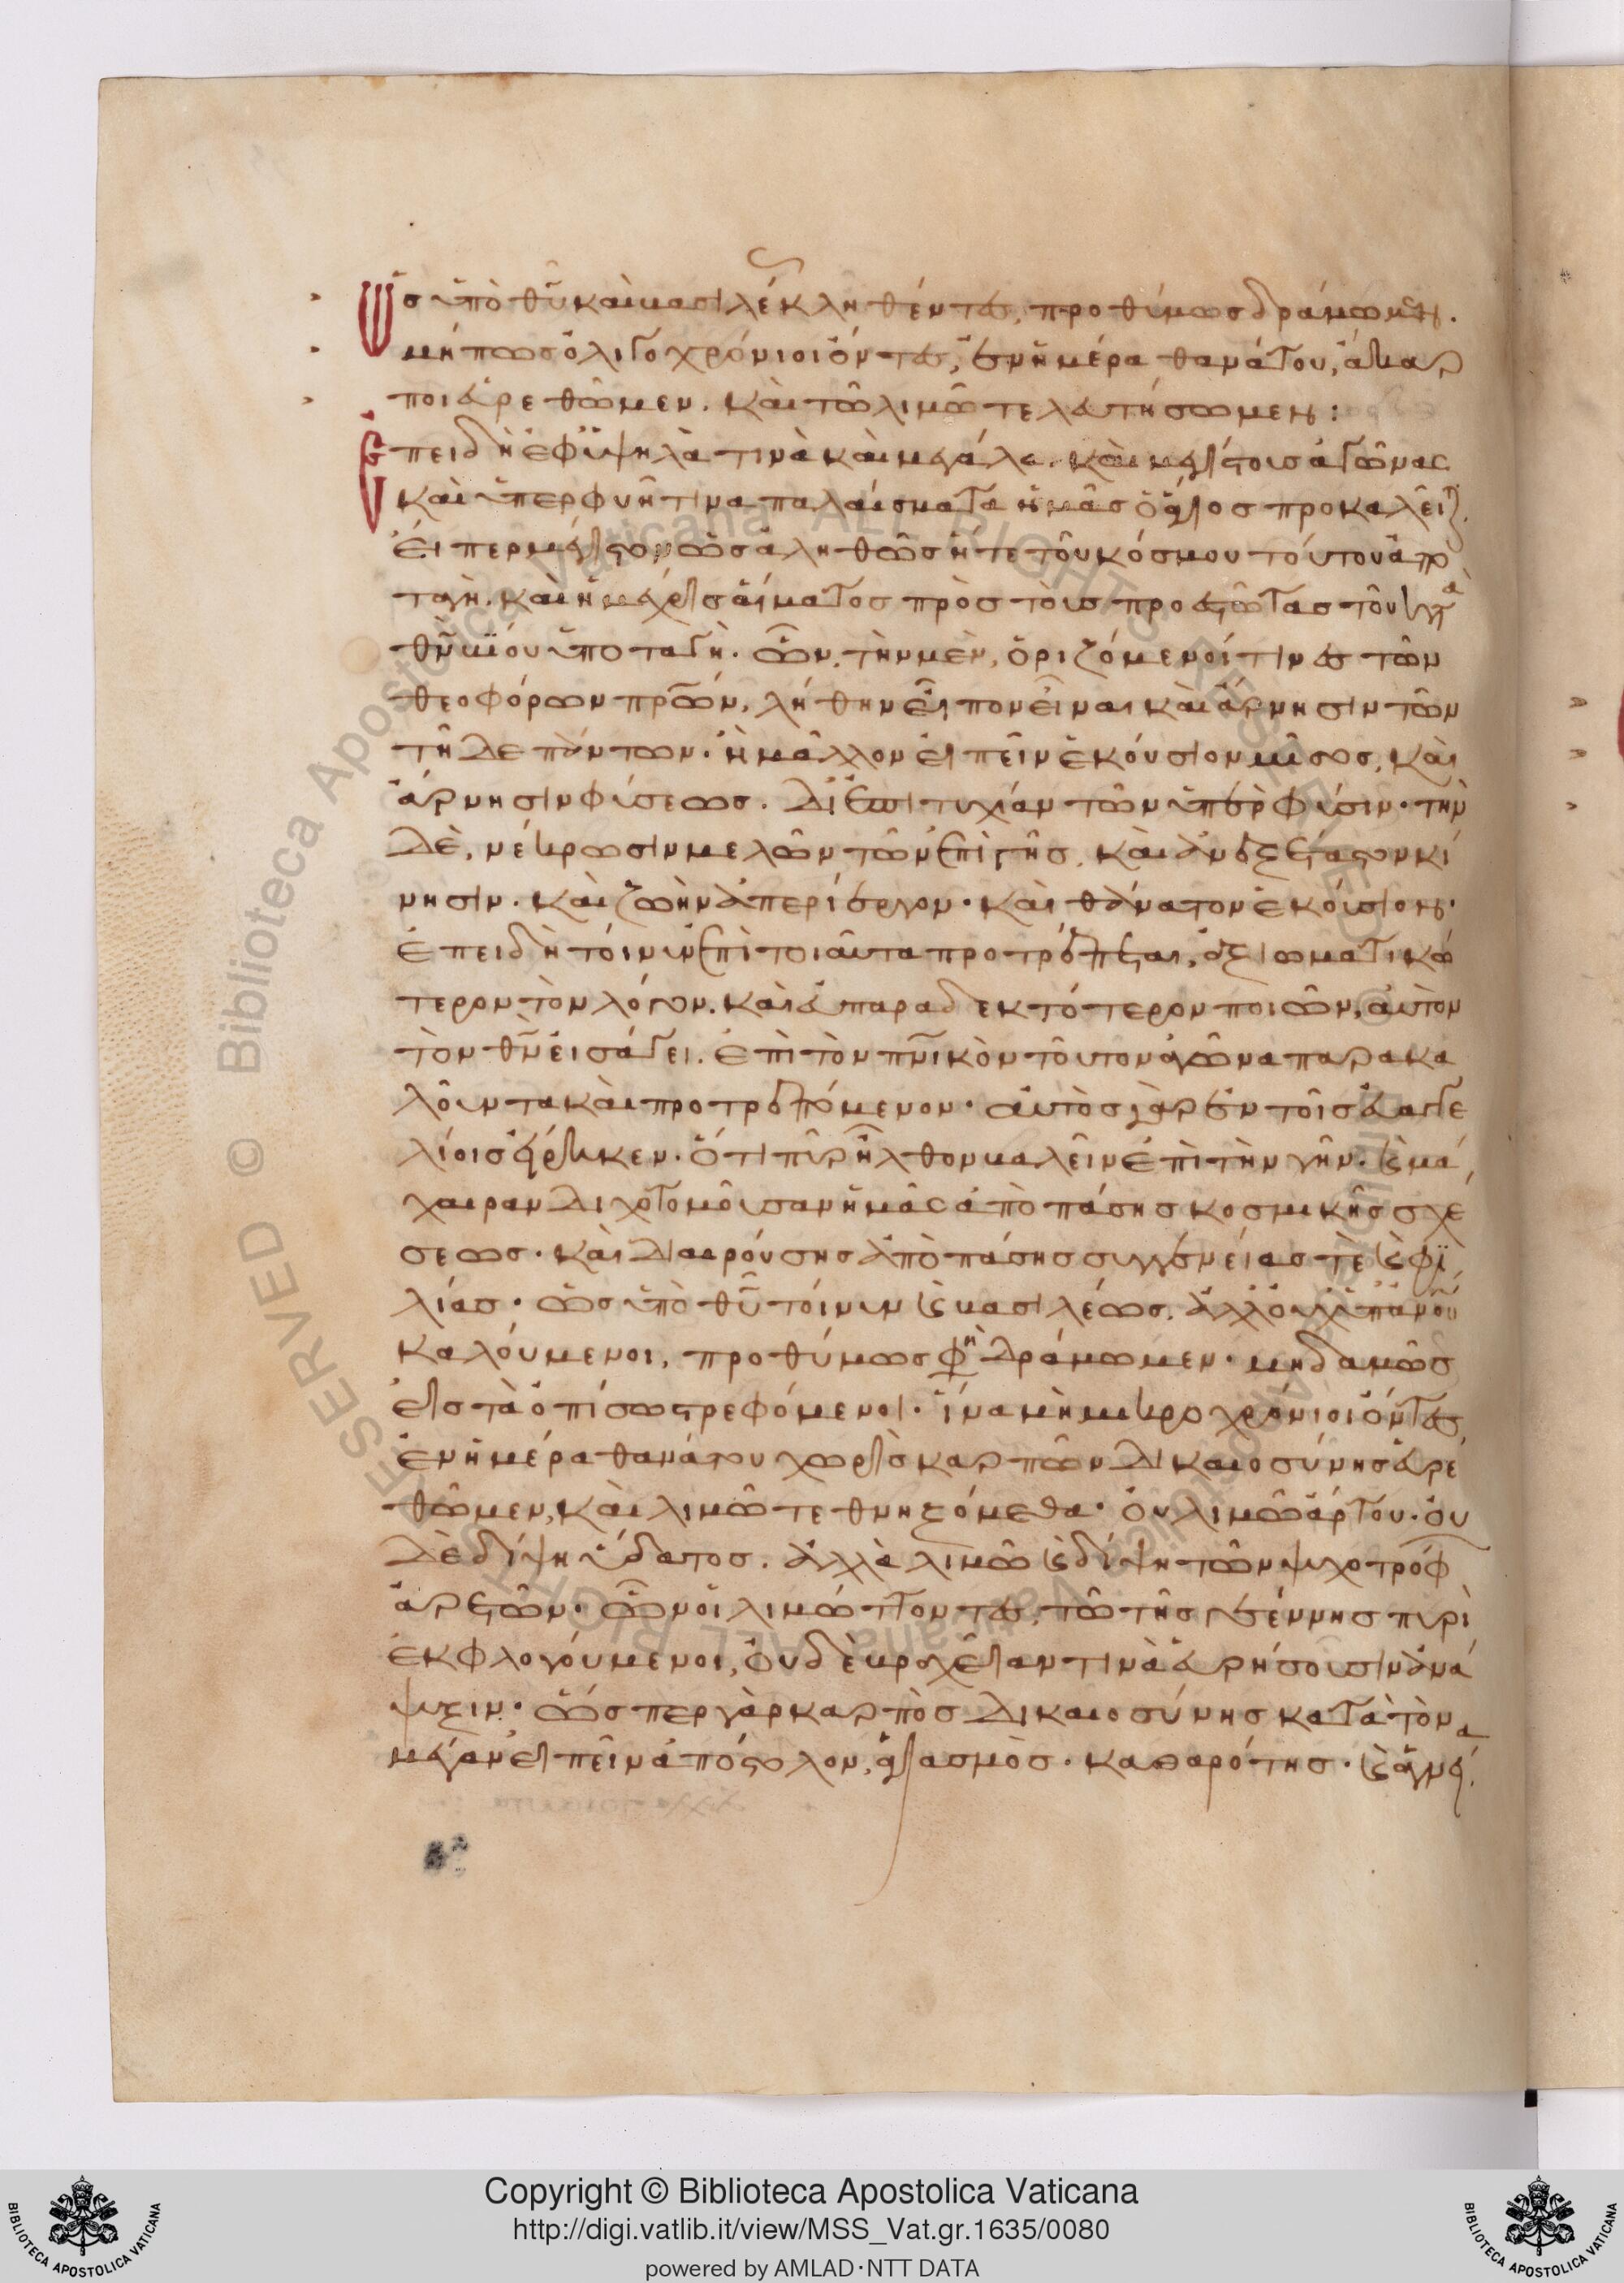 Ὡς ὑπὸ θῦ καὶ βασιλέ κληθέντες, προθύμως δράμωμεν.
μήπως ὀλιγοχρόνιοι ὄντες, ἐν ἡμέρα θανάτου, ἄκαρ
ποι εὑρεθῶμεν. καὶ τῶ λιμῶ τελευτήσωμεν:
Ἐπειδὴ ἐφ ὑψηλά τινα καὶ μεγάλα. καὶ μεγίστους ἀγῶνας
καὶ ὑπερφυῆ τινα παλαίσματα ἡμᾶς ὁ ἅγιος προκαλεῖτ
εἴπερ μέγιστον ὡς ἀληθῶς ἥ τε τοῦ κόσμου τούτου ἀπο
ταγὴ. καὶ ἡ μέχρις αἵματος πρὸς τοὺς προεστῶτας τοῦ κατὰ
θν βίου ὑποταγὴ. ὧν, τὴν μὲν, ὁριζόμενοί τινες τῶν
θεοφόρων πρων, λήθην εἶπον εἶναι καὶ ἄρνησιν τῶν
τῆδε πάντων. ἢ μᾶλλον εἰπεῖν ἑκούσιον μῖσος, καὶ
ἄρνησιν φύσεως. δι ἐπιτυχίαν τῶν ὑπὲρ φύσιν. τὴν
δὲ, νέκρωσιν μελῶν τῶν ἐπὶ γῆς, καὶ ἀνεξέταστον κί
νησιν. καὶ ζωὴν ἀπερίεργον. καὶ θάνατον ἑκούσιον.
ἐπειδὴ τοίνυν ἐπὶ τοιαῦτα προτρέπεται, ἀξιωματικώ
τερον τὸν λόγον. καὶ εὐπαραδεκτότερον ποιῶν, αὐτὸν
τὸν θν εἰσάγει. ἐπὶ τὸν πνικὸν τοῦτον ἀγῶνα παρακα
λοῦντα καὶ προτρεπόμενον. αὐτὸς γὰρ ἐν τοῖς εὐαγγε
λίοις εἴρηκεν. ὅτι πῦρ ἦλθον βαλεῖν ἐπὶ τὴν γῆν. καὶ μά
χαιραν διχοτομοῦσαν ἡμᾶς ἀπὸ πάσης κοσμικῆς σχέ
σεως. καὶ διαιρούσης ἀπὸ πάσης συγγενείας τὲ καὶ φι
λίας. ὡς ὑπὸ θῦ τοίνυν καὶ βασιλέως. ἀλλ οὐχ ὑπ ἀνου
καλούμενοι, προθύμως φη δράμωμεν. μηδαμῶς
εἰς τὰ ὀπίσω στρεφόμενοι. ἵνα μὴ μικροχρόνιοι ὄντες
ἐν ἡμέρα θανάτου χωρὶς καρπῶν δικαιοσύνης εὑρε
θῶμεν, καὶ λιμῶ τεθνηξόμεθα. οὐ λιμῶ ἄρτου. οὐ
δὲ δίψη ὕδατος. ἀλλὰ λιμῶ καὶ δίψη τῶν ψυχοτρόφ
ἀρετῶν. ὧν οἱ λιμώττοντες, τῶ τῆς γεέννης πυρὶ
ἐκφλογούμενοι, οὐδὲ βροχεῖάν τινα εὑρήσουσιν ἀνά
ψυξιν. ὥσπερ γὰρ καρπὸς δικαιοσύνης κατὰ τὸν
μέγαν εἰπεῖν ἀπόστολον, ἁγιασμὸς. καθαρότης. καὶ ἁγνεία.
Copyright © Biblioteca Apostolica Vaticana
http://digi.vatlib.it/view/MSS_Vat.gr.1635/0080
powered by AMLAD·NTT DATA